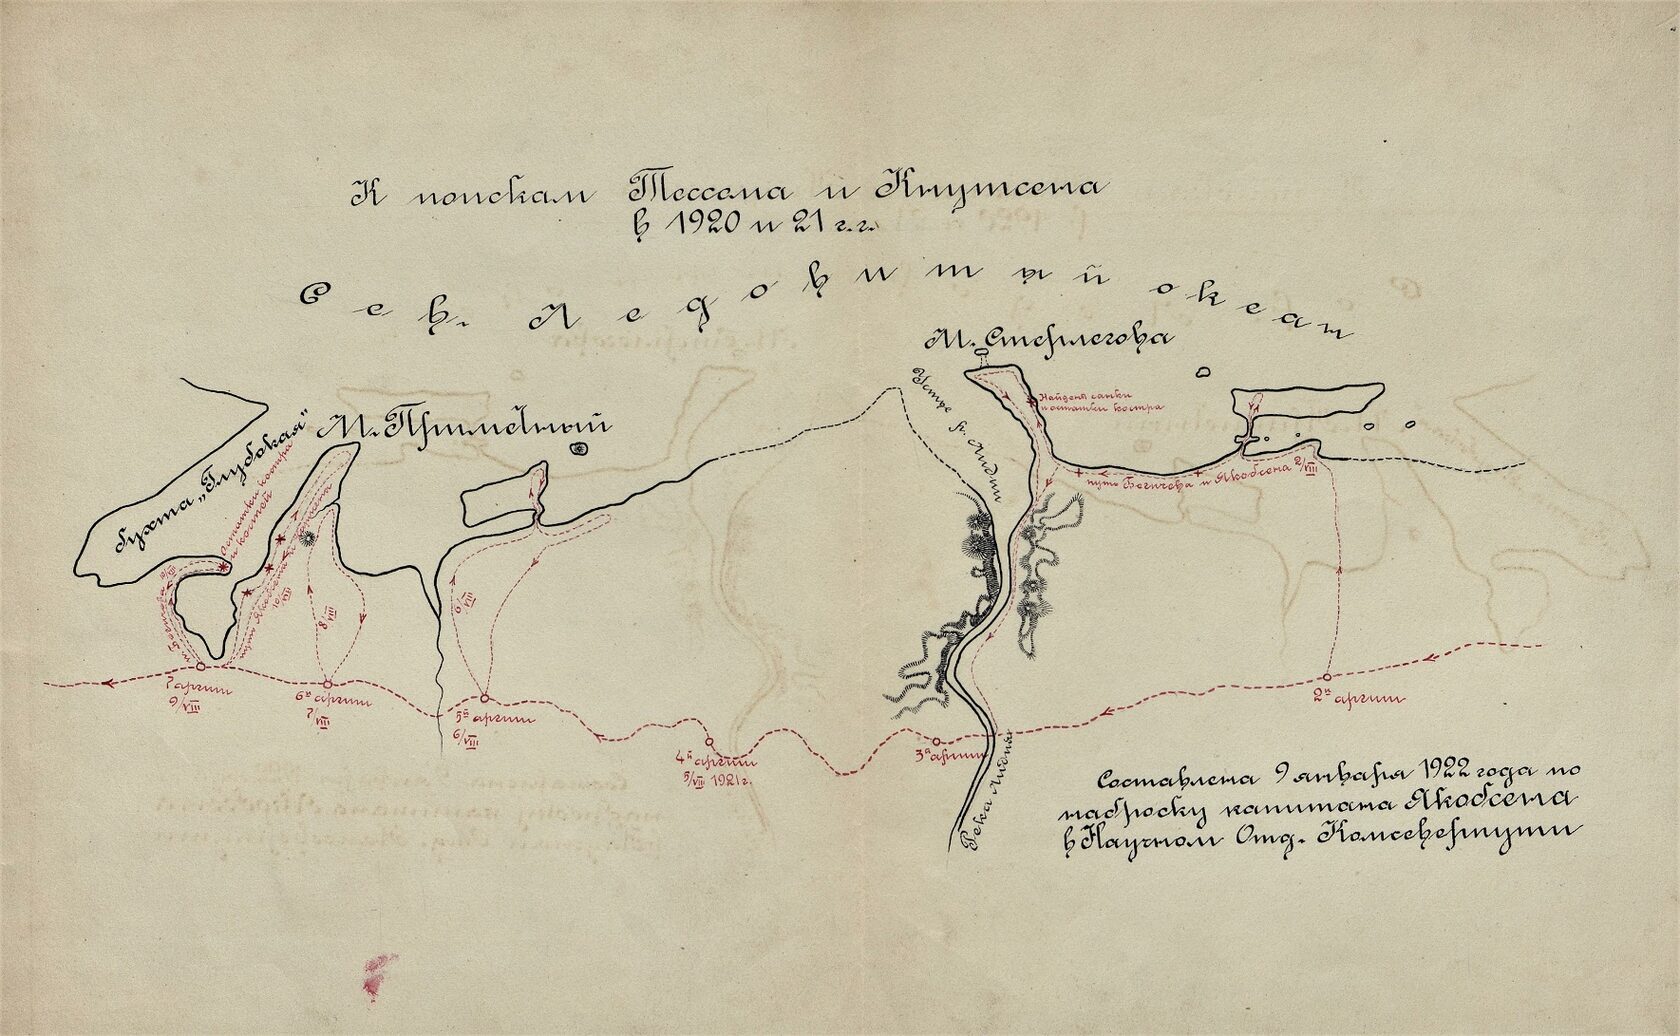 К поискам Тессема и Кнутсена
в 1920 и 21 г.г.
Сев. Ледовитый океан
М. Стерлегова
М. Приметный
бухта „Глубокая"
Остатки костра
и костей
Устье р. Лидии
Найдены санки
и остатки костра
путь Бегичева и Якобсена 2/VIII
путь Бегичева 9/VIII
путь Якобсена 10/VIII
8/VIII
6/VIII
7 аргиш
9/VIII
6й аргиш
7/VIII
5й аргиш
6/VIII
4й аргиш
5/VIII 1921г.
3й аргиш
2й аргиш
Река Лидия
Составлена 9 января 1922 года по
наброску капитана Якобсена
в Научном Отд. Комсеверпути